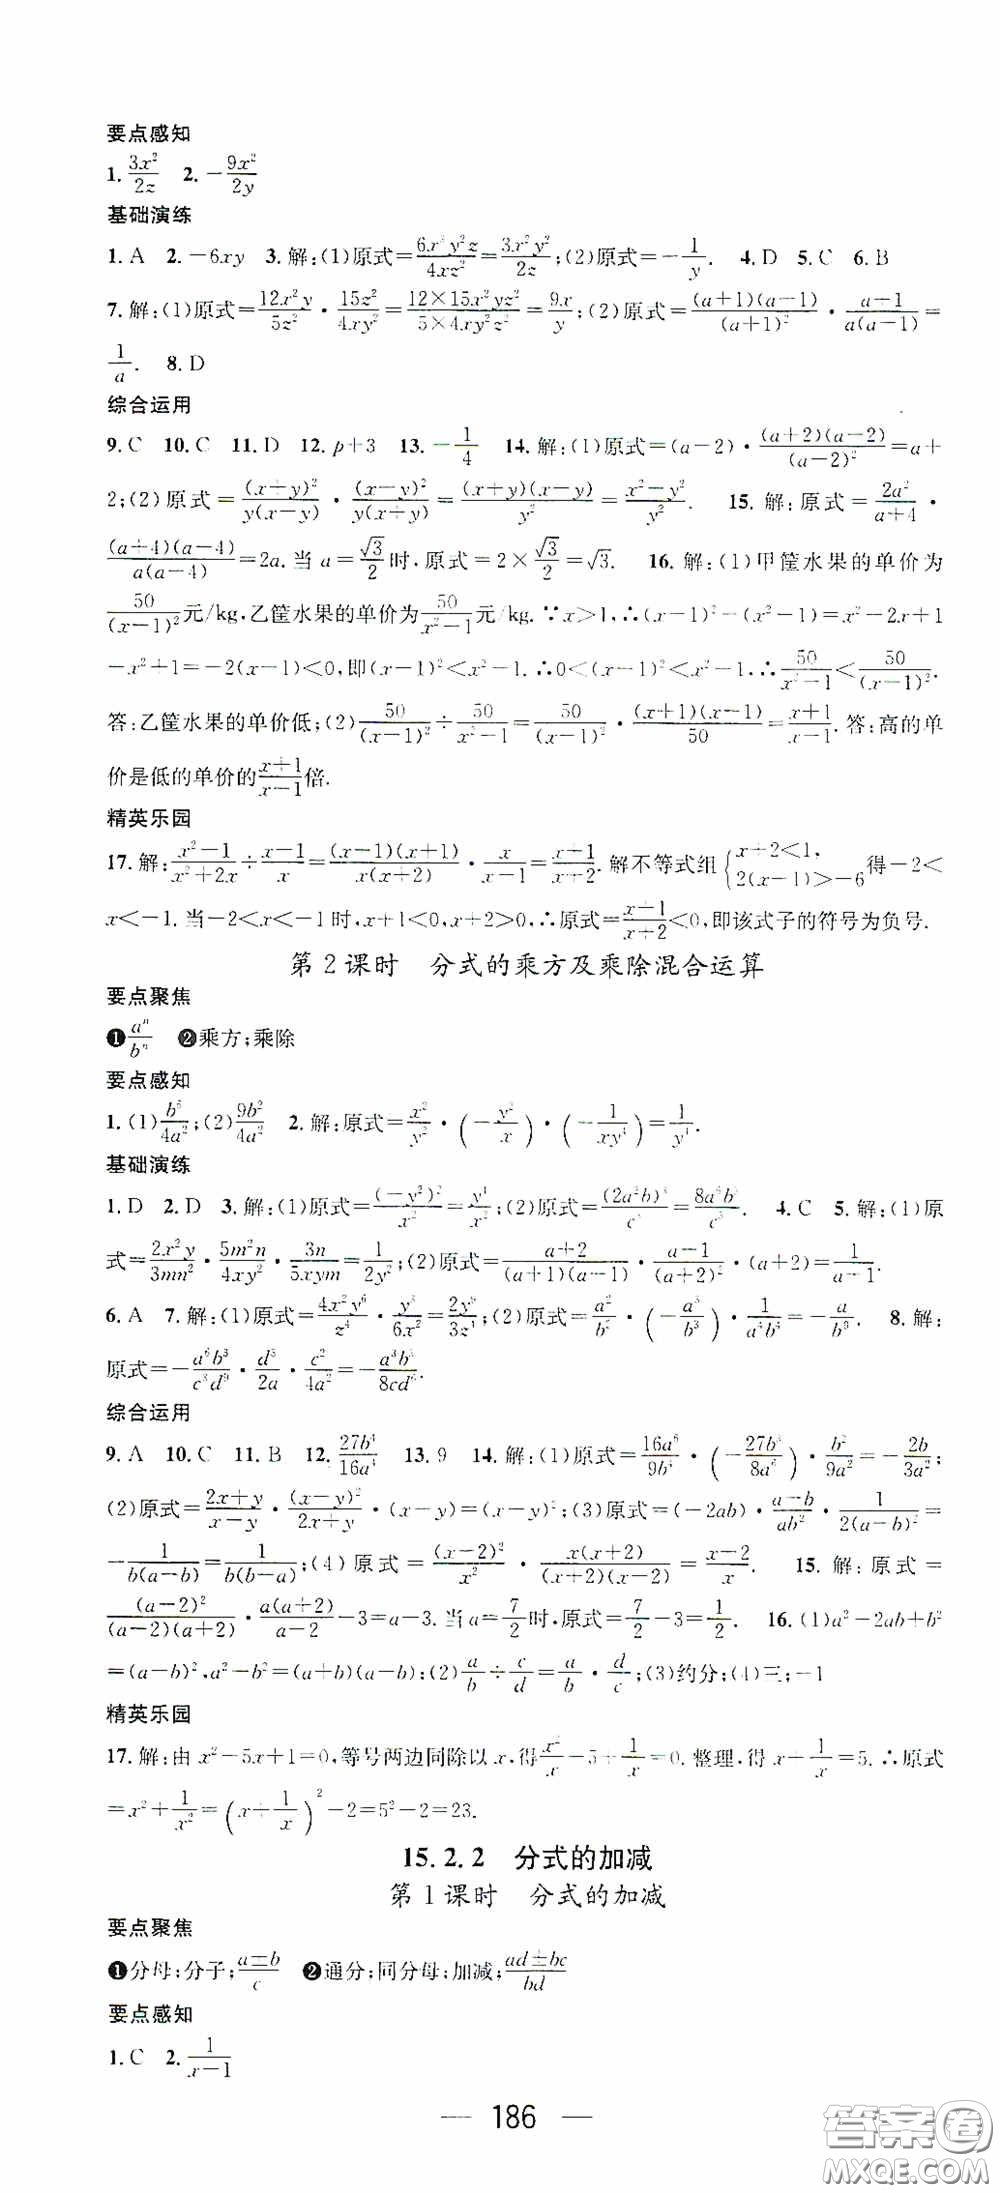 要点感知
1. 3x²/2z  2. －9x²/2y
基础演练
1. A  2. －6xy  3. 解:(1)原式＝6x³y²z/4xz²＝3x²y²/2z;(2)原式＝－1/y.  4. D  5. C  6. B
7. 解:(1)原式＝12x²y/5z²·15z²/4xy²＝12×15x²yz²/5×4xy²z²＝9x/y;(2)原式＝(a＋1)(a－1)/(a＋1)²·a－1/a(a－1)＝
1/a.  8. D
综合运用
9. C  10. C  11. D  12. p＋3  13. －1/4  14. 解:(1)原式＝(a－2)·(a＋2)(a－2)/(a－2)²＝a＋
2;(2)原式＝(x＋y)²/y(x－y)·(x－y)²/y(x＋y)＝(x＋y)(x－y)/y²＝x²－y²/y².  15. 解:原式＝2a²/a＋4·
(a＋4)(a－4)/a(a－4)＝2a. 当 a＝√3/2时,原式＝2×√3/2＝√3.  16. 解:(1)甲筐水果的单价为
50/(x－1)²元/kg,乙筐水果的单价为50/x²－1元/kg. ∵x＞1,∴(x－1)²－(x²－1)＝x²－2x＋1
－x²＋1＝－2(x－1)＜0,即(x－1)²＜x²－1. ∴0＜(x－1)²＜x²－1. ∴50/x²－1＜50/(x－1)².
答:乙筐水果的单价低;(2)50/(x－1)²÷50/x²－1＝50/(x－1)²·(x＋1)(x－1)/50＝x＋1/x－1. 答:高的单
价是低的单价的x＋1/x－1倍.
精英乐园
17. 解:x²－1/x²＋2x÷x－1/x＝(x－1)(x＋1)/x(x＋2)·x/x－1＝x＋1/x＋2. 解不等式组{x＋2＜1, 2(x－1)＞－6得－2＜
x＜－1. 当－2＜x＜－1时,x＋1＜0,x＋2＞0,∴原式＝x＋1/x＋2＜0,即该式子的符号为负号.
第2课时 分式的乘方及乘除混合运算
要点聚焦
❶aⁿ/bⁿ  ❷乘方;乘除
要点感知
1. (1)b⁶/4a²;(2)9b²/4a²  2. 解:原式＝x²/y²·(－y²/x)·(－1/xy⁴)＝1/y⁴.
基础演练
1. D  2. D  3. 解:(1)原式＝(－y²)²/x²＝y⁴/x²;(2)原式＝(2a²b)³/c³＝8a⁶b³/c³.  4. C  5. 解:(1)原
式＝2x²y/3mn²·5m²n/4xy²·3n/5xym＝1/2y²;(2)原式＝a＋2/(a＋1)(a－1)·a－1/(a＋2)²·(a＋1)(a＋2)＝1/a－1.
6. A  7. 解:(1)原式＝4x²y⁶/z⁴·y³/6x²＝2y⁹/3z⁴;(2)原式＝·(－a³/b³)·＝－a/b³.  8. 解:
原式＝－a⁶b³/c³d⁹·d³/2a·c²/4a²＝－a³b³/8cd⁶.
综合运用
9. A  10. C  11. B  12. 27b⁴/16a⁴  13. 9  14. 解:(1)原式＝16a⁶/9b⁴·(－27b³/8a⁶)·b²/9a²＝－2b/3a²;
(2)原式＝2x＋y/x－y·(x－y)²/2x＋y·(x－y)＝(x－y)²;(3)原式＝(－2ab)·a－b/ab²·1/2(a－b)²＝
－1/b(a－b)＝1/b(b－a);(4)原式＝(x－2)²/x²·x(x＋2)/(x＋2)(x－2)＝x－2/x.  15. 解:原式＝
(a－2)²/(a－2)(a＋2)·a(a＋2)/a－2－3＝a－3. 当 a＝7/2时,原式＝7/2－3＝1/2.  16. (1)a²－2ab＋b²
＝(a－b)²,a²－b²＝(a＋b)(a－b);(2)a/b÷c/d＝a/b·d/c;(3)约分;(4)三;－1
精英乐园
17. 解:由 x²－5x＋1＝0,等号两边同除以 x,得x²/x－5＋1/x＝0. 整理,得 x＋1/x＝5. ∴原式
＝x²＋1/x²＝(x＋1/x)²－2＝5²－2＝23.
15.2.2 分式的加减
第1课时 分式的加减
要点聚焦
❶分母;分子;a±b/c  ❷通分;同分母;加减;ad±bc/bd
要点感知
1. C  2. 1/x－1
— 186 —
答案圈
MXQE.COM